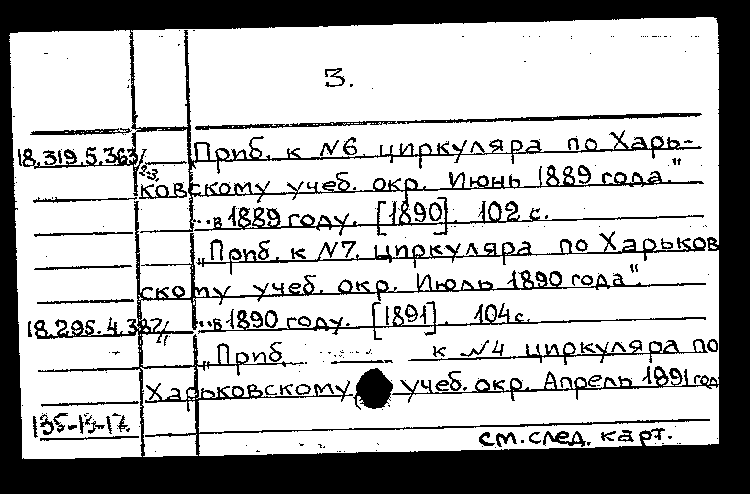 3.
18.319.5.363/2-3. „Приб. к №6. циркуляра по Харь-
ковскому учеб. окр. Июнь 1889 года."
...в 1889 году. [1890]. 102 с.
„Приб. к №7. циркуляра по Харьков
скому учеб. окр. Июль 1890 года".
18.295.4.387/11 ...в 1890 году. [1891]. 104 с.
„Приб. к №4 циркуляра по
Харьковскому учеб. окр. Апрель 1891 год
см. след. карт.